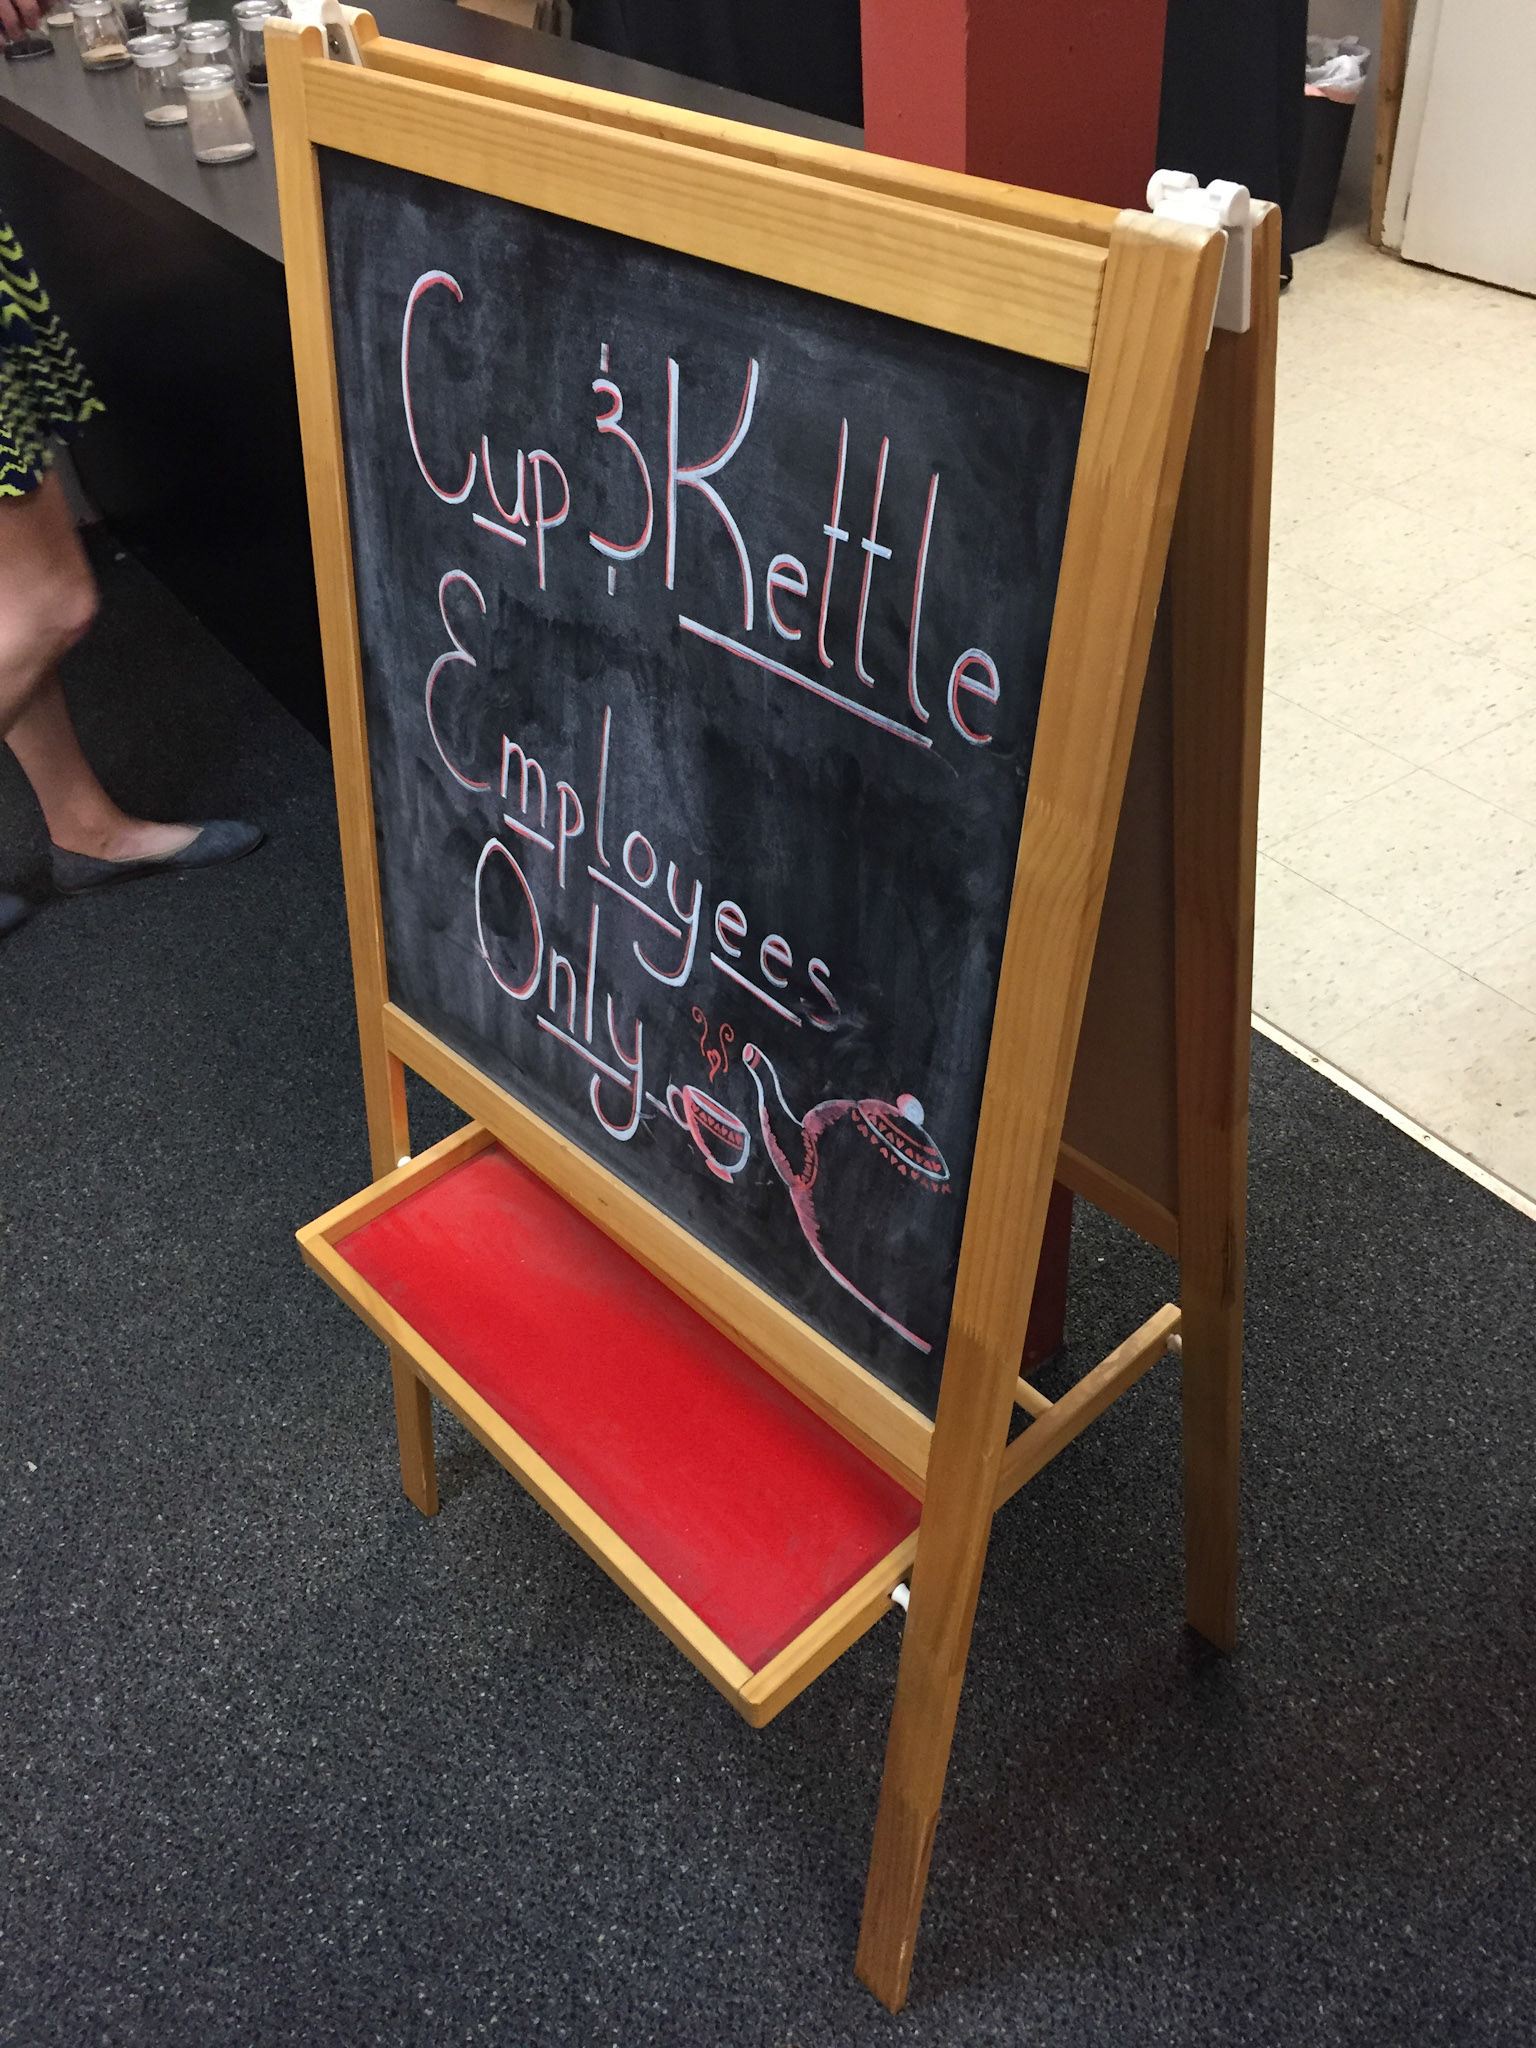 Cup & Kettle
Employees
Only